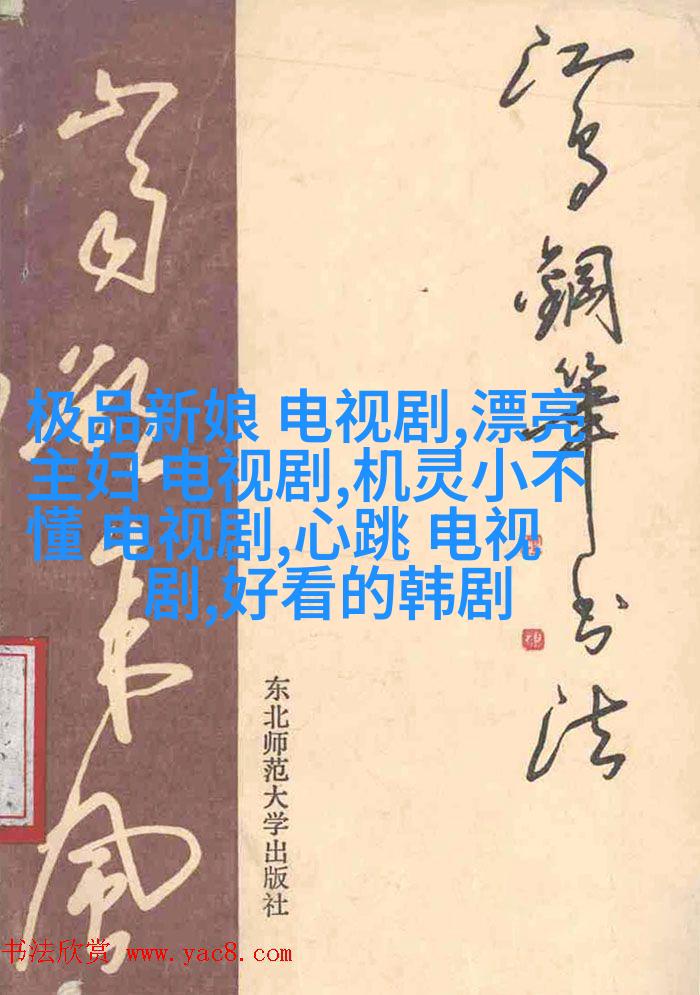 江鸟鋼筆书法
极品新娘 电视剧,漂亮
主妇 电视剧,机灵小不
懂 电视剧,心跳 电视
剧,好看的韩剧
东北师范大学出版社
书法欣赏 www.yac8.com